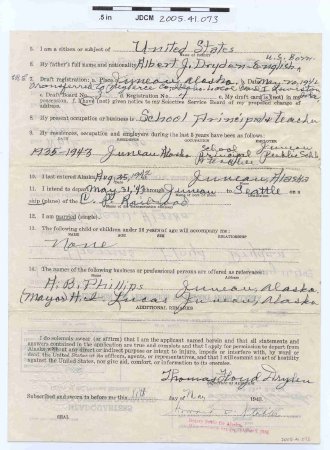 .5 in JDCM 2005.41.073
5. I am a citizen or subject of United States
U.S. Born
6. My father's full name and nationality Albert J. Dryden - English
7. Draft registration: a. Place Juneau, Alaska b. Date May 20, 1941
possession. I (have) (not) given notice to my Selective Service Board of my proposed change of
address.
8. My present occupation or business is School Principal + Teacher
9. My residences, occupation and employers during the last 5 years have been as follows:
RESIDENCES OCCUPATION EMPLOYER
1935-1943 Juneau, Alaska School Principal Teacher Juneau Public Schls
10. I last entered Alaska Aug 25, 1942 Juneau, Alaska
11. I intend to depart May 31, 43 from Juneau to Seattle on
ship (plane) of C. P. Railroad
12. I am married (single).
13. The following child or children under 16 years of age will accompany me:
NAME SEX RELATIONSHIP
None
14. The names of the following business or professional persons are offered as references:
H. B. Phillips Juneau, Alaska
(Mayor) H. I. Lucas Juneau, Alaska
ADDITIONAL REMARKS
I do solemnly swear (or affirm) that I am the applicant named herein and that all statements
and answers contained in the application are true and complete and that I apply for permission to depart from
Alaska without any direct or indirect purpose or intent to injure, impede or interfere with, by word or
deed the United States or its officers, agents, or representatives, and that I will commit no act of hostility
against the United States, nor give aid, comfort, or information to its enemies.
Thomas Floyd Dryden
Subscribed and sworn to before me this 18th day of May 194
SEAL
2005.41.073